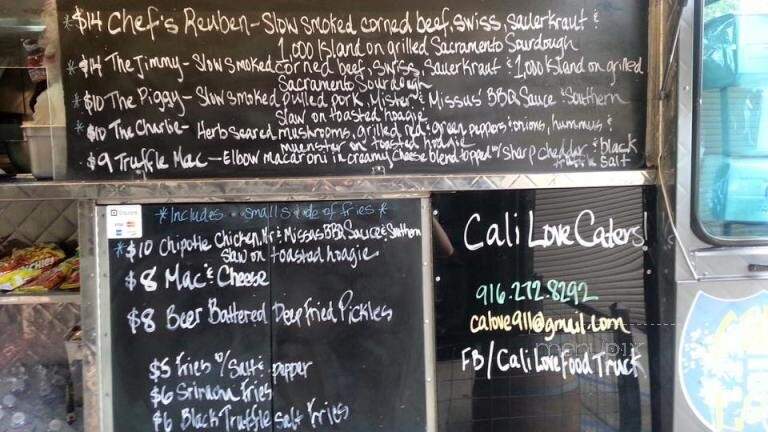 *$14 Chef's Reuben - Slow smoked corned beef, swiss, sauerkraut &
1,000 Island on grilled Sacramento Sourdough
*$14 The Jimmy - Slow smoked corned beef, swiss, sauerkraut & 1,000 Island on grilled
Sacramento Sourdough
*$10 The Piggy - Slow smoked pulled pork, Mister & Missus' BBQ Sauce & Southern
slaw on toasted hoagie
*$10 The Charlie - Herb seared mushrooms, grilled red & green peppers & onions, hummus &
muenster on toasted hoagie
$9 Truffle Mac - Elbow macaroni in creamy cheese blend topped w/ sharp cheddar & black
truffle salt
*Includes small side of fries*
*$10 Chipotle Chicken, Mr & Missus BBQ Sauce & Southern
slaw on toasted hoagie
$8 Mac & Cheese
$8 Beer Battered Deep Fried Pickles
$5 Fries w/ Salt & pepper
$6 Sriracha Fries
$6 Black Truffle Salt Fries
Cali Love Caters!
916.272.8292
calove911@gmail.com
FB/Cali Love Food Truck
menupix